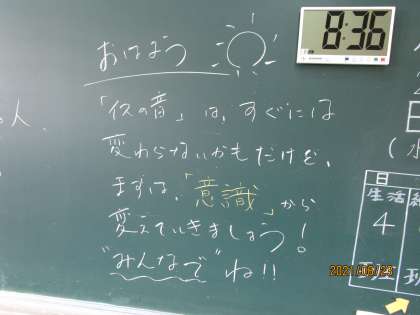 おはよう
8:36
「イスの音」は、すぐには
変わらないかもだけど、
まずは、「意識」から
変えていきましょう!
"みんなで"ね!!
人、
日
生活
4
班
2021/06/23